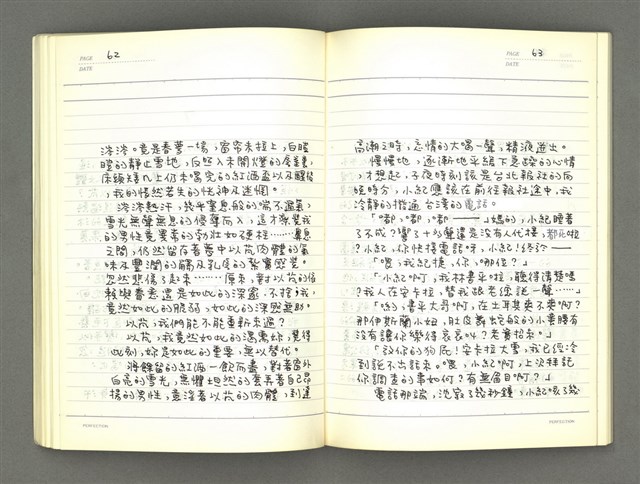 PAGE 62
DATE
涔涔。竟是春夢一場,窗帘未拉上,白皚
皚的靜止雪地,反照入未開燈的房裏,
床頭矮几上仍未喝完的紅酒盃以及
,我的悵然若失的性神及迷惘。
涔涔起汗,幾乎窒息般的喘不過氣,
雪光無聲無息的侵蓐而入,這才驚覺我
的男性竟異常的勃壯如硬柱……鼻息
之間,仍然留存著夢中以苡肉體的氣
味及豐潤的觸及乳房的緊實感覺。
忽然悲傷了起來……原來,對以苡的信
賴與眷戀還是如此的深邃,不捨;我
竟然如此的脆弱,如此的深然無助。
以苡,我們能不能重新來過?
以苡,我竟然如此的渴寓妳,覺得
此刻,妳是如此的重要,無以替代。
將餘留的紅酒一飲而盡,對著窗外
白亮的雪光,無懼坦然的套弄著自己昂
揚的男性,意淫著以苡的肉體,到達
PERFECTION
PAGE 63
DATE
高潮之時,忘情的大喝一聲,精液迸出。
慢慢地,逐漸地平緩下悬疑的心情
,才想起,子夜時刻該是台北報社的向
晚時分,小紀應該在前往報社途中,我
冷靜的撥通台灣的電話。
「嘟,嘟,嘟——」媽的,小紀睡著
了不成?響了十幾聲還是沒有人代接,都死啦
?小紀,你快接電話呀,小紀!終於——
「喂,我紀捷,你,哪位?」
「小紀啊,我林書平啦,聽得清楚嗎
?我人在安卡拉,替我跟老徐說一聲……」
「喲,書平大哥啊,在土耳其爽不爽啊?
那伊斯蘭小妞,肚皮舞蛇般的小蠻腰有
沒有讓你樂得哀哀叫?老實招來。」
「去你的狗屁!安卡拉大雪,我已經冷
到說不出話來。喂,小紀啊,上次拜託
你調查的事如何?有無眉目啊?」
電話那端,沈寂了幾秒鐘,小紀咳了幾
PERFECTION